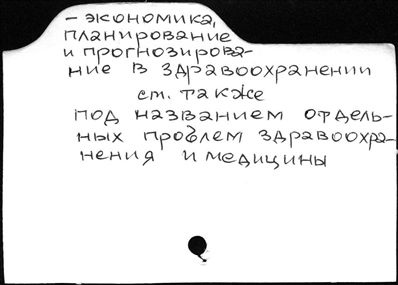 - экономика,
планирование
и прогнозирова-
ние в здравоохранении
см. также
под названием отдель-
ных проблем здравоохра-
нения и медицины